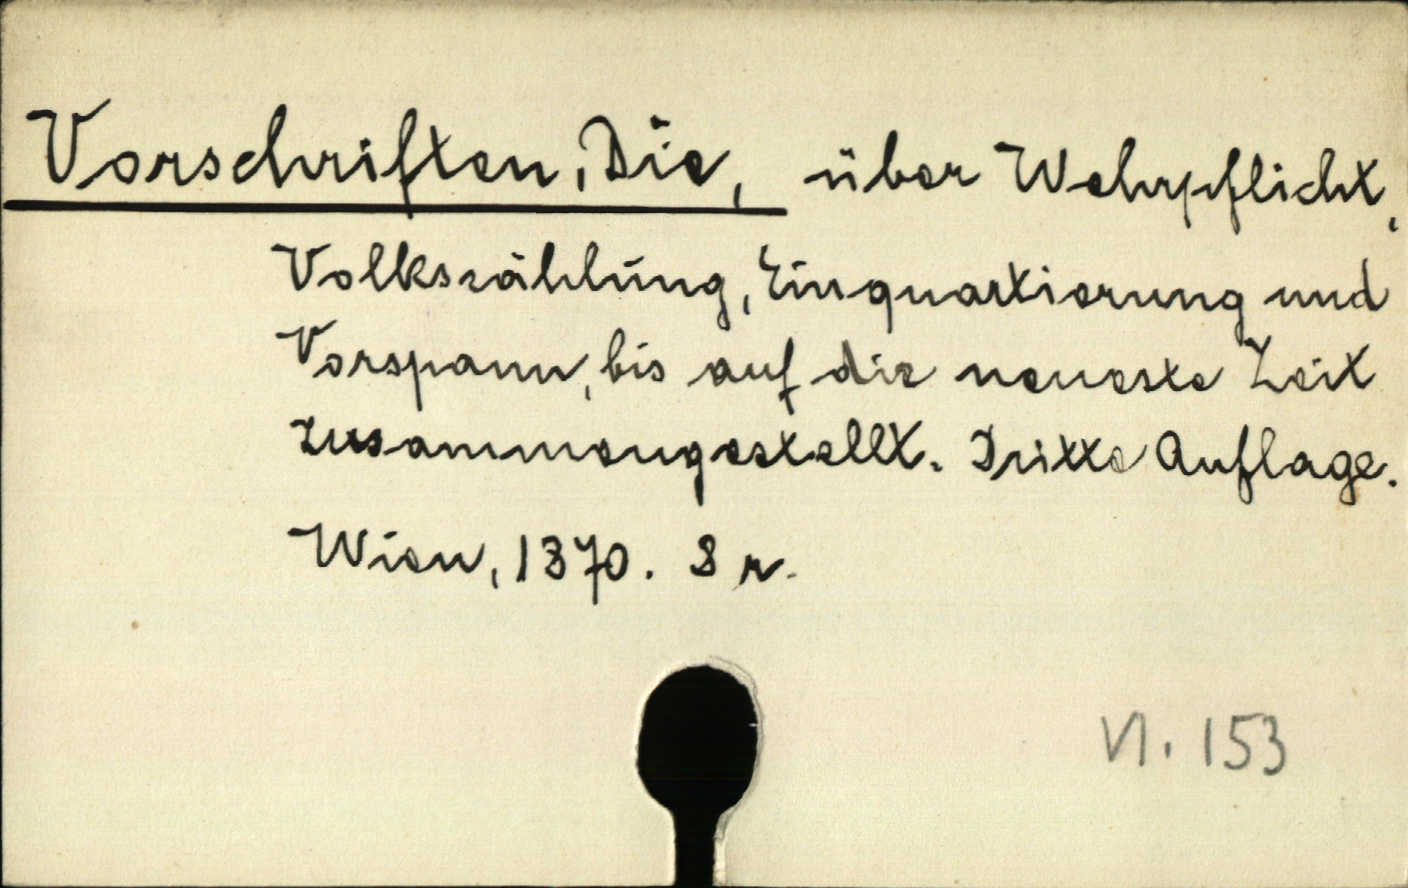 Vorschriften, Die, über Wehrpflicht,
Volkszählung, Einquartierung und
Vorspann, bis auf die neueste Zeit
zusammengestellt. Dritte Auflage.
Wien, 1870. 8 r.
VI. 153